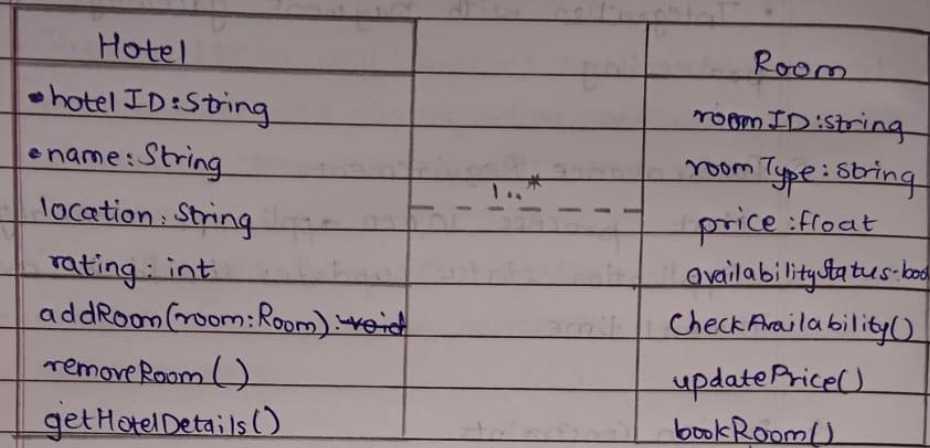 Hotel
hotel ID:String
name: String
location: String
rating: int
addRoom(room:Room): void
removeRoom()
getHotelDetails()
1..*
Room
roomID:string
roomType: string
price: float
availabilityStatus-bool
CheckAvailability()
updatePrice()
bookRoom()